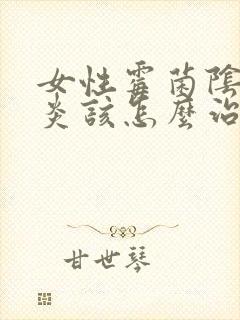 女性霉菌陰
炎該怎麼治
甘世琴